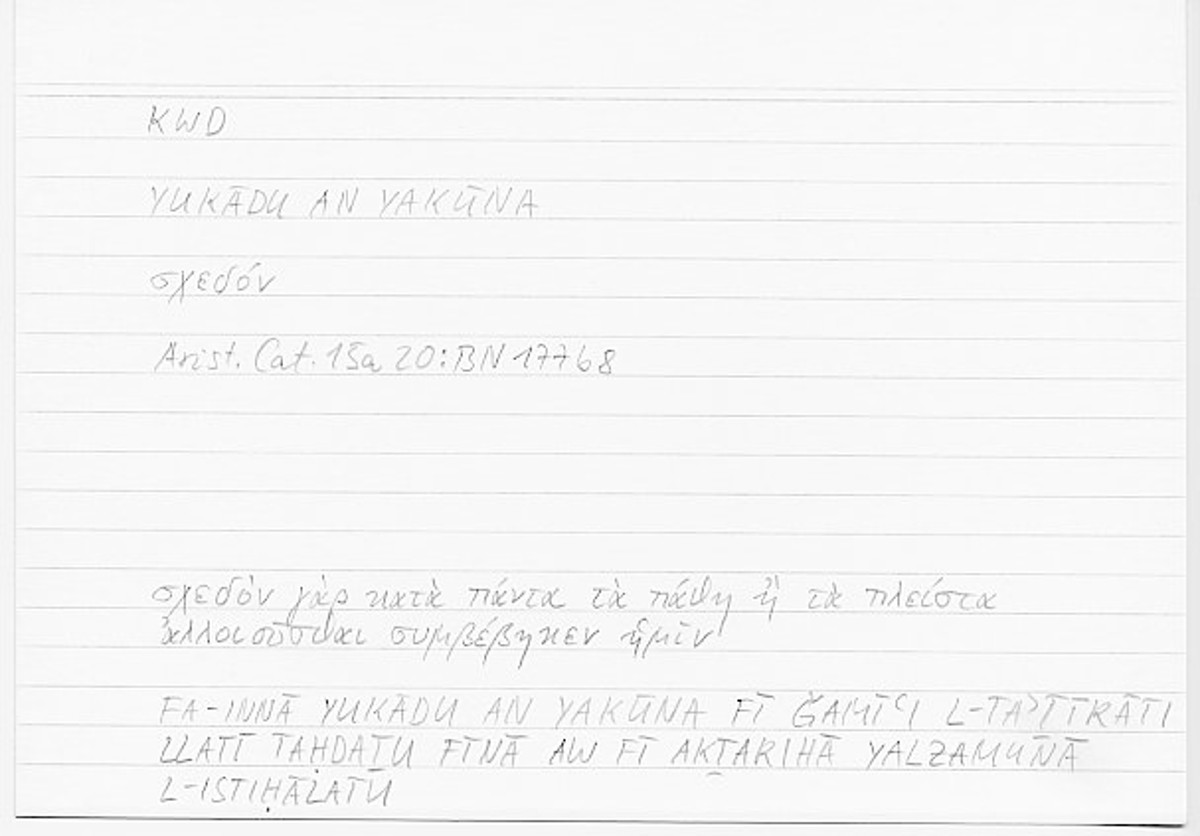 KWD
YUKĀDU AN YAKŪNA
σχεδόν
Arist. Cat. 15a 20: BN 177b8
σχεδὸν γὰρ κατὰ πάντα τὰ πάθη ἢ τὰ πλεῖστα
ἀλλοιοῦσθαι συμβέβηκεν ἡμῖν
FA-INNĀ YUKĀDU AN YAKŪNA FĪ ǦAMĪʿI L-TAʾṮĪRĀTI
LLATĪ TAḤDAṮU FĪNĀ AW FĪ AKṮARIHĀ YALZAMUNĀ
L-ISTIḤĀLATU